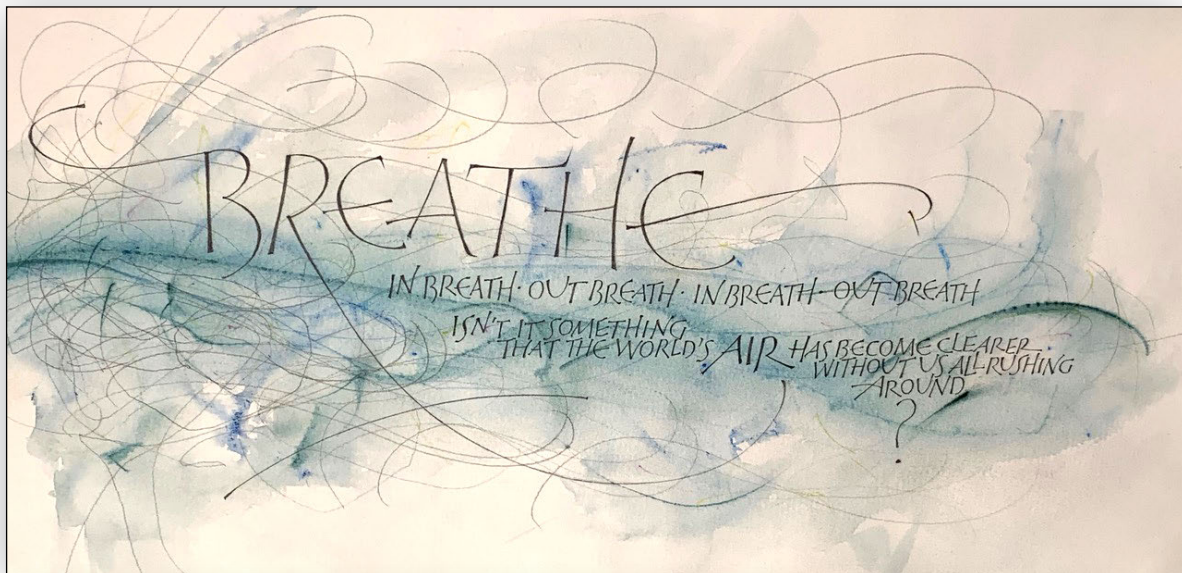 BREATHE
IN BREATH · OUT BREATH · IN BREATH · OUT BREATH
ISN'T IT SOMETHING
THAT THE WORLD'S AIR HAS BECOME CLEARER
WITHOUT US ALL RUSHING
AROUND
?